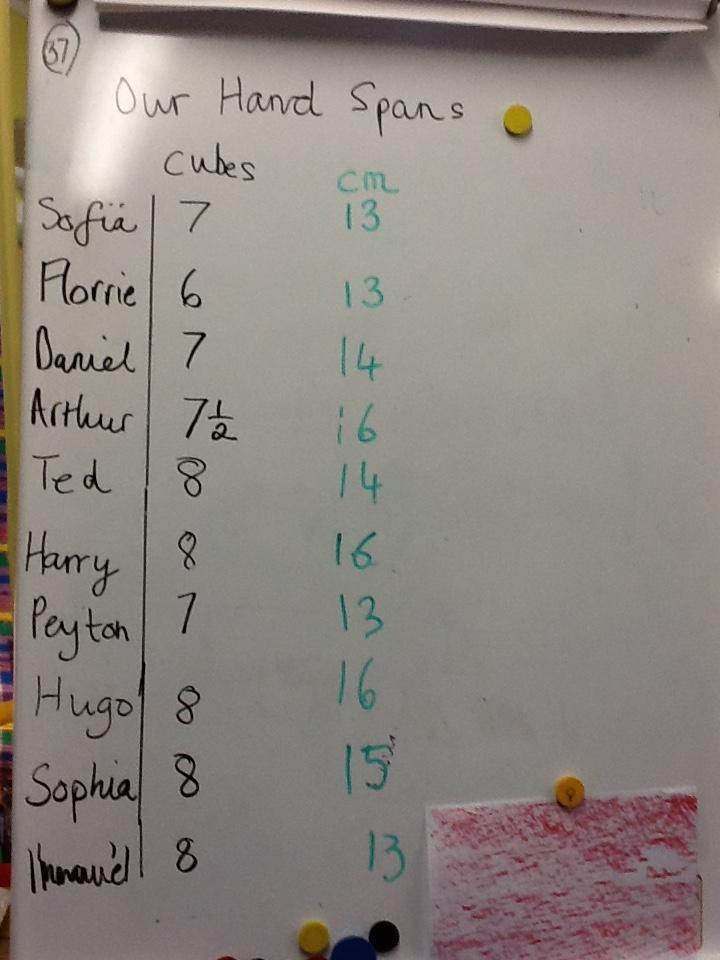 37
Our Hand Spans
cubes cm
Sofia 7 13
Florrie 6 13
Daniel 7 14
Arthur 7 1/2 16
Ted 8 14
Harry 8 16
Peyton 7 13
Hugo 8 16
Sophia 8 15
8 13